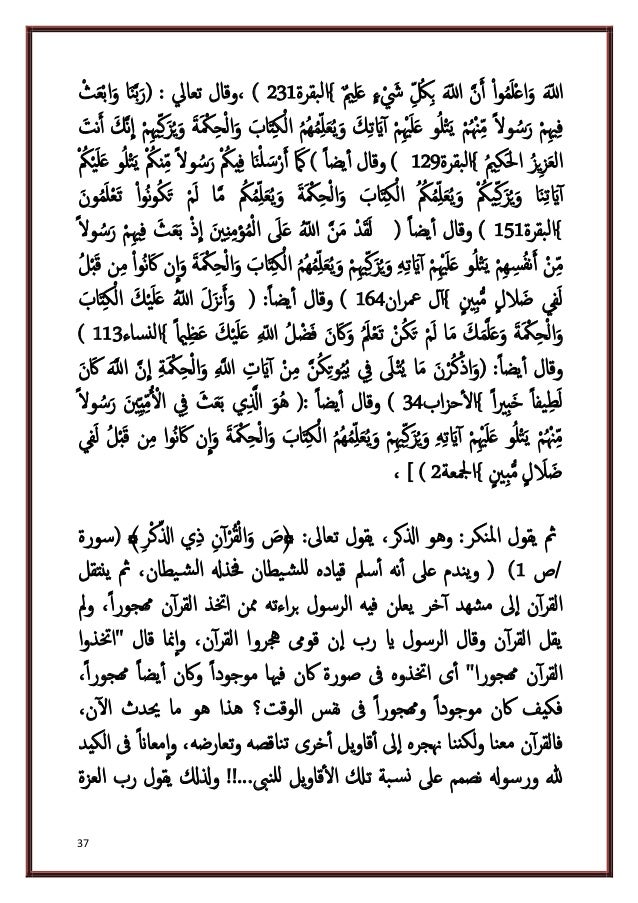 اللّهَ وَاعْلَمُواْ أَنَّ اللّهَ بِكُلِّ شَيْءٍ عَلِيمٌ }البقرة231 ) ،وقال تعالي : (رَبَّنَا وَابْعَثْ
فِيهِمْ رَسُولاً مِّنْهُمْ يَتْلُو عَلَيْهِمْ آيَاتِكَ وَيُعَلِّمُهُمُ الْكِتَابَ وَالْحِكْمَةَ وَيُزَكِّيهِمْ إِنَّكَ أَنتَ
العَزِيزُ الحَكِيمُ }البقرة129 ) وقال أيضاً )كَمَا أَرْسَلْنَا فِيكُمْ رَسُولاً مِّنكُمْ يَتْلُو عَلَيْكُمْ
آيَاتِنَا وَيُزَكِّيكُمْ وَيُعَلِّمُكُمُ الْكِتَابَ وَالْحِكْمَةَ وَيُعَلِّمُكُم مَّا لَمْ تَكُونُواْ تَعْلَمُونَ
}البقرة151 ) وقال أيضاً ( لَقَدْ مَنَّ اللّهُ عَلَى الْمُؤمِنِينَ إِذْ بَعَثَ فِيهِمْ رَسُولاً
مِّنْ أَنفُسِهِمْ يَتْلُو عَلَيْهِمْ آيَاتِهِ وَيُزَكِّيهِمْ وَيُعَلِّمُهُمُ الْكِتَابَ وَالْحِكْمَةَ وَإِن كَانُواْ مِن قَبْلُ
لَفِي ضَلالٍ مُّبِينٍ }آل عمران164 ) وقال أيضاً: ( وَأَنزَلَ اللّهُ عَلَيْكَ الْكِتَابَ
وَالْحِكْمَةَ وَعَلَّمَكَ مَا لَمْ تَكُنْ تَعْلَمُ وَكَانَ فَضْلُ اللّهِ عَلَيْكَ عَظِيماً }النساء113 )
وقال أيضاً: (وَاذْكُرْنَ مَا يُتْلَى فِي بُيُوتِكُنَّ مِنْ آيَاتِ اللَّهِ وَالْحِكْمَةِ إِنَّ اللَّهَ كَانَ
لَطِيفاً خَبِيراً }الأحزاب34 ) وقال أيضاً :( هُوَ الَّذِي بَعَثَ فِي الْأُمِّيِّينَ رَسُولاً
مِّنْهُمْ يَتْلُو عَلَيْهِمْ آيَاتِهِ وَيُزَكِّيهِمْ وَيُعَلِّمُهُمُ الْكِتَابَ وَالْحِكْمَةَ وَإِن كَانُوا مِن قَبْلُ لَفِي
ضَلَالٍ مُّبِينٍ }الجمعة2 ) ] ،
ثم يقول المنكر: وهو الذكر، يقول تعالى: ﴿صَ وَالْقُرْآنِ ذِي الذِّكْرِ﴾ (سورة
/ص 1) ( ويندم على أنه أسلم قياده للشيطان فخذله الشيطان، ثم ينتقل
القرآن إلى مشهد آخر يعلن فيه الرسول براءته ممن اتخذ القرآن مهجوراً، ولم
يقل القرآن وقال الرسول يا رب إن قومى هجروا القرآن، وإنما قال "اتخذوا
القرآن مهجورا" أى اتخذوه فى صورة كان فيها موجوداً وكان أيضاً مهجوراً،
فكيف كان موجوداً ومهجوراً فى نفس الوقت؟ هذا هو ما يحدث الآن،
فالقرآن معنا ولكننا نهجره إلى أقاويل أخرى تناقصه وتعارضه، وإمعاناً فى الكيد
لله ورسوله نصمم على نسبة تلك الأقاويل للنبى...!! ولذلك يقول رب العزة
37